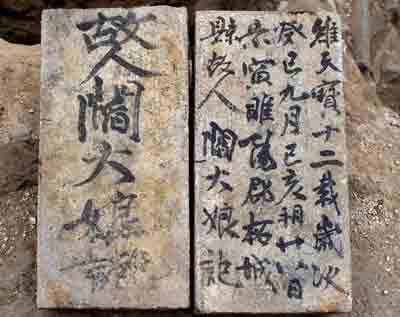 維天寶十二載歲次
癸巳九月己亥朔廿八日
寅睢陽郡柘城
縣故人大娘記
故人大娘